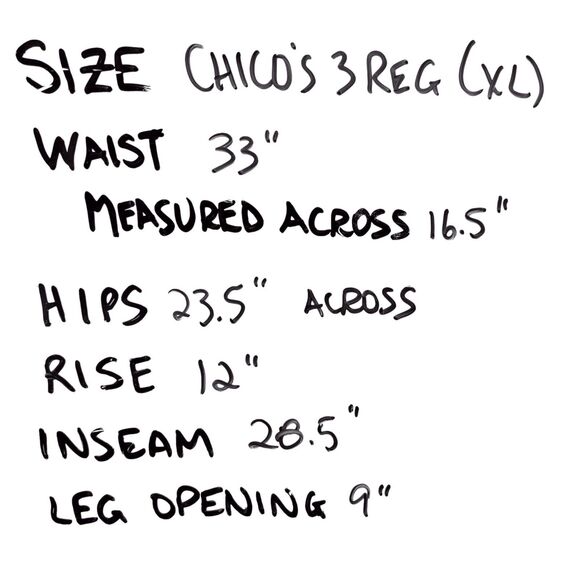 SIZE CHICO'S 3 REG (XL)
WAIST 33"
MEASURED ACROSS 16.5"
HIPS 23.5" ACROSS
RISE 12"
INSEAM 28.5"
LEG OPENING 9"